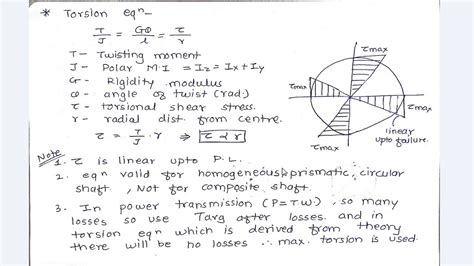 * Torsion eqⁿ-
T/J = Gθ/l = τ/r
T - Twisting moment
J - Polar M.I = Iz = Ix + Iy
G - Rigidity modulus
θ - angle of twist (rad.)
τ - torsional shear stress.
r - radial dist. from centre.
τ = T/J . r ⇒ τ ∝ r
τmax
τmax
τmax
τmax
linear
upto failure.
Note
1. τ is linear upto P.L.
2. eqⁿ valid for homogeneous, prismatic, circular
shaft, Not for composite shaft.
3. In power transmission (P=T.W), so many
losses so use Tavg after losses. and in
torsion eqⁿ which is derived from theory
there will be no losses ∴ max. torsion is used.